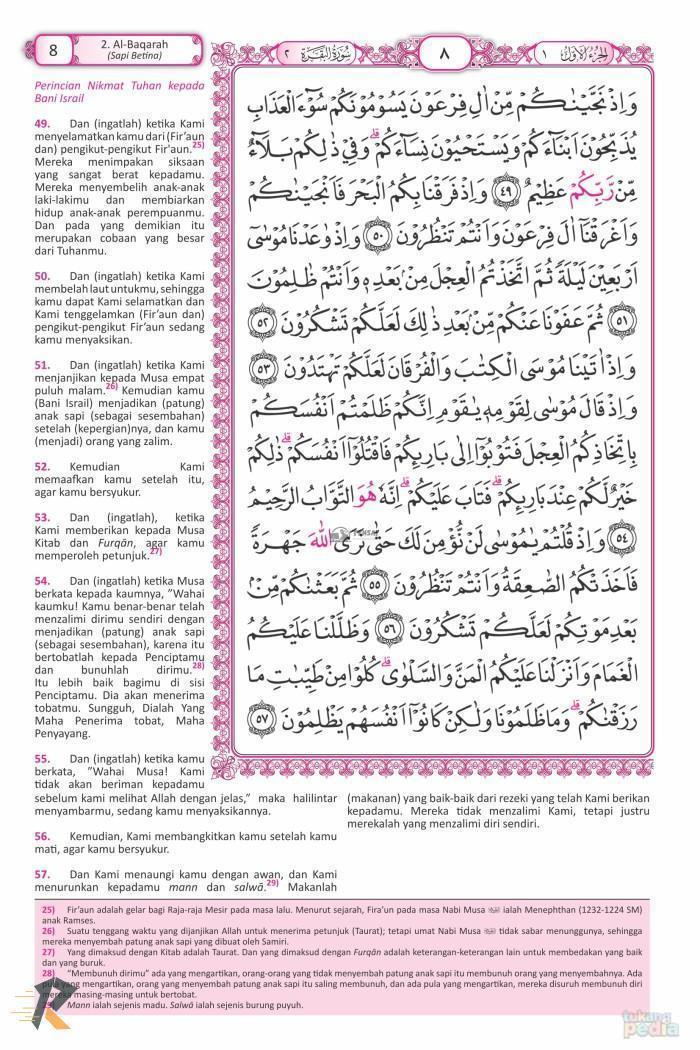 8
2. Al-Baqarah
(Sapi Betina)
سُوْرَةُ الْبَقَرَةِ ٢
٨
اَلْجُزْءُ الْاَوَّلُ ١
Perincian Nikmat Tuhan kepada
Bani Israil
49. Dan (ingatlah) ketika Kami
menyelamatkan kamu dari (Fir'aun
dan) pengikut-pengikut Fir'aun.25)
Mereka menimpakan siksaan
yang sangat berat kepadamu.
Mereka menyembelih anak-anak
laki-lakimu dan membiarkan
hidup anak-anak perempuanmu.
Dan pada yang demikian itu
merupakan cobaan yang besar
dari Tuhanmu.
50. Dan (ingatlah) ketika Kami
membelah laut untukmu, sehingga
kamu dapat Kami selamatkan dan
Kami tenggelamkan (Fir'aun dan)
pengikut-pengikut Fir'aun sedang
kamu menyaksikan.
51. Dan (ingatlah) ketika Kami
menjanjikan kepada Musa empat
puluh malam.26) Kemudian kamu
(Bani Israil) menjadikan (patung)
anak sapi (sebagai sesembahan)
setelah (kepergian)nya, dan kamu
(menjadi) orang yang zalim.
52. Kemudian Kami
memaafkan kamu setelah itu,
agar kamu bersyukur.
53. Dan (ingatlah), ketika
Kami memberikan kepada Musa
Kitab dan Furqān, agar kamu
memperoleh petunjuk.27)
54. Dan (ingatlah) ketika Musa
berkata kepada kaumnya, "Wahai
kaumku! Kamu benar-benar telah
menzalimi dirimu sendiri dengan
menjadikan (patung) anak sapi
(sebagai sesembahan), karena itu
bertobatlah kepada Penciptamu
dan bunuhlah dirimu.28)
Itu lebih baik bagimu di sisi
Penciptamu. Dia akan menerima
tobatmu. Sungguh, Dialah Yang
Maha Penerima tobat, Maha
Penyayang.
55. Dan (ingatlah) ketika kamu
berkata, "Wahai Musa! Kami
tidak akan beriman kepadamu
sebelum kami melihat Allah dengan jelas," maka halilintar
menyambarmu, sedang kamu menyaksikannya.
56. Kemudian, Kami membangkitkan kamu setelah kamu
mati, agar kamu bersyukur.
57. Dan Kami menaungi kamu dengan awan, dan Kami
menurunkan kepadamu mann dan salwā.29) Makanlah
(makanan) yang baik-baik dari rezeki yang telah Kami berikan
kepadamu. Mereka tidak menzalimi Kami, tetapi justru
merekalah yang menzalimi diri sendiri.
وَاِذْ نَجَّيْنٰكُمْ مِّنْ اٰلِ فِرْعَوْنَ يَسُوْمُوْنَكُمْ سُوْۤءَ الْعَذَابِ
يُذَبِّحُوْنَ اَبْنَاۤءَكُمْ وَيَسْتَحْيُوْنَ نِسَاۤءَكُمْ ۗ وَفِيْ ذٰلِكُمْ بَلَاۤءٌ
مِّنْ رَّبِّكُمْ عَظِيْمٌ ٤٩ وَاِذْ فَرَقْنَا بِكُمُ الْبَحْرَ فَاَنْجَيْنٰكُمْ
وَاَغْرَقْنَآ اٰلَ فِرْعَوْنَ وَاَنْتُمْ تَنْظُرُوْنَ ٥٠ وَاِذْ وٰعَدْنَا مُوْسٰٓى
اَرْبَعِيْنَ لَيْلَةً ثُمَّ اتَّخَذْتُمُ الْعِجْلَ مِنْۢ بَعْدِهٖ وَاَنْتُمْ ظٰلِمُوْنَ
٥١ ثُمَّ عَفَوْنَا عَنْكُمْ مِّنْۢ بَعْدِ ذٰلِكَ لَعَلَّكُمْ تَشْكُرُوْنَ ٥٢
وَاِذْ اٰتَيْنَا مُوْسَى الْكِتٰبَ وَالْفُرْقَانَ لَعَلَّكُمْ تَهْتَدُوْنَ ٥٣
وَاِذْ قَالَ مُوْسٰى لِقَوْمِهٖ يٰقَوْمِ اِنَّكُمْ ظَلَمْتُمْ اَنْفُسَكُمْ
بِاتِّخَاذِكُمُ الْعِجْلَ فَتُوْبُوْٓا اِلٰى بَارِىِٕكُمْ فَاقْتُلُوْٓا اَنْفُسَكُمْ ۗ ذٰلِكُمْ
خَيْرٌ لَّكُمْ عِنْدَ بَارِىِٕكُمْ ۗ فَتَابَ عَلَيْكُمْ ۗ اِنَّهٗ هُوَ التَّوَّابُ الرَّحِيْمُ
٥٤ وَاِذْ قُلْتُمْ يٰمُوْسٰى لَنْ نُّؤْمِنَ لَكَ حَتّٰى نَرَى اللّٰهَ جَهْرَةً
فَاَخَذَتْكُمُ الصّٰعِقَةُ وَاَنْتُمْ تَنْظُرُوْنَ ٥٥ ثُمَّ بَعَثْنٰكُمْ مِّنْۢ
بَعْدِ مَوْتِكُمْ لَعَلَّكُمْ تَشْكُرُوْنَ ٥٦ وَظَلَّلْنَا عَلَيْكُمُ
الْغَمَامَ وَاَنْزَلْنَا عَلَيْكُمُ الْمَنَّ وَالسَّلْوٰى ۗ كُلُوْا مِنْ طَيِّبٰتِ مَا
رَزَقْنٰكُمْ ۗ وَمَا ظَلَمُوْنَا وَلٰكِنْ كَانُوْٓا اَنْفُسَهُمْ يَظْلِمُوْنَ ٥٧
25) Fir'aun adalah gelar bagi Raja-raja Mesir pada masa lalu. Menurut sejarah, Fira'un pada masa Nabi Musa ialah Menephthan (1232-1224 SM)
anak Ramses.
26) Suatu tenggang waktu yang dijanjikan Allah untuk menerima petunjuk (Taurat); tetapi umat Nabi Musa tidak sabar menunggunya, sehingga
mereka menyembah patung anak sapi yang dibuat oleh Samiri.
27) Yang dimaksud dengan Kitab adalah Taurat. Dan yang dimaksud dengan Furqān adalah keterangan-keterangan lain untuk membedakan yang baik
dan yang buruk.
28) "Membunuh dirimu" ada yang mengartikan, orang-orang yang tidak menyembah patung anak sapi itu membunuh orang yang menyembahnya. Ada
pula yang mengartikan, orang yang menyembah patung anak sapi itu saling membunuh, dan ada pula yang mengartikan, mereka disuruh membunuh diri
mereka masing-masing untuk bertobat.
29) Mann ialah sejenis madu. Salwā ialah sejenis burung puyuh.
tukang
pedia